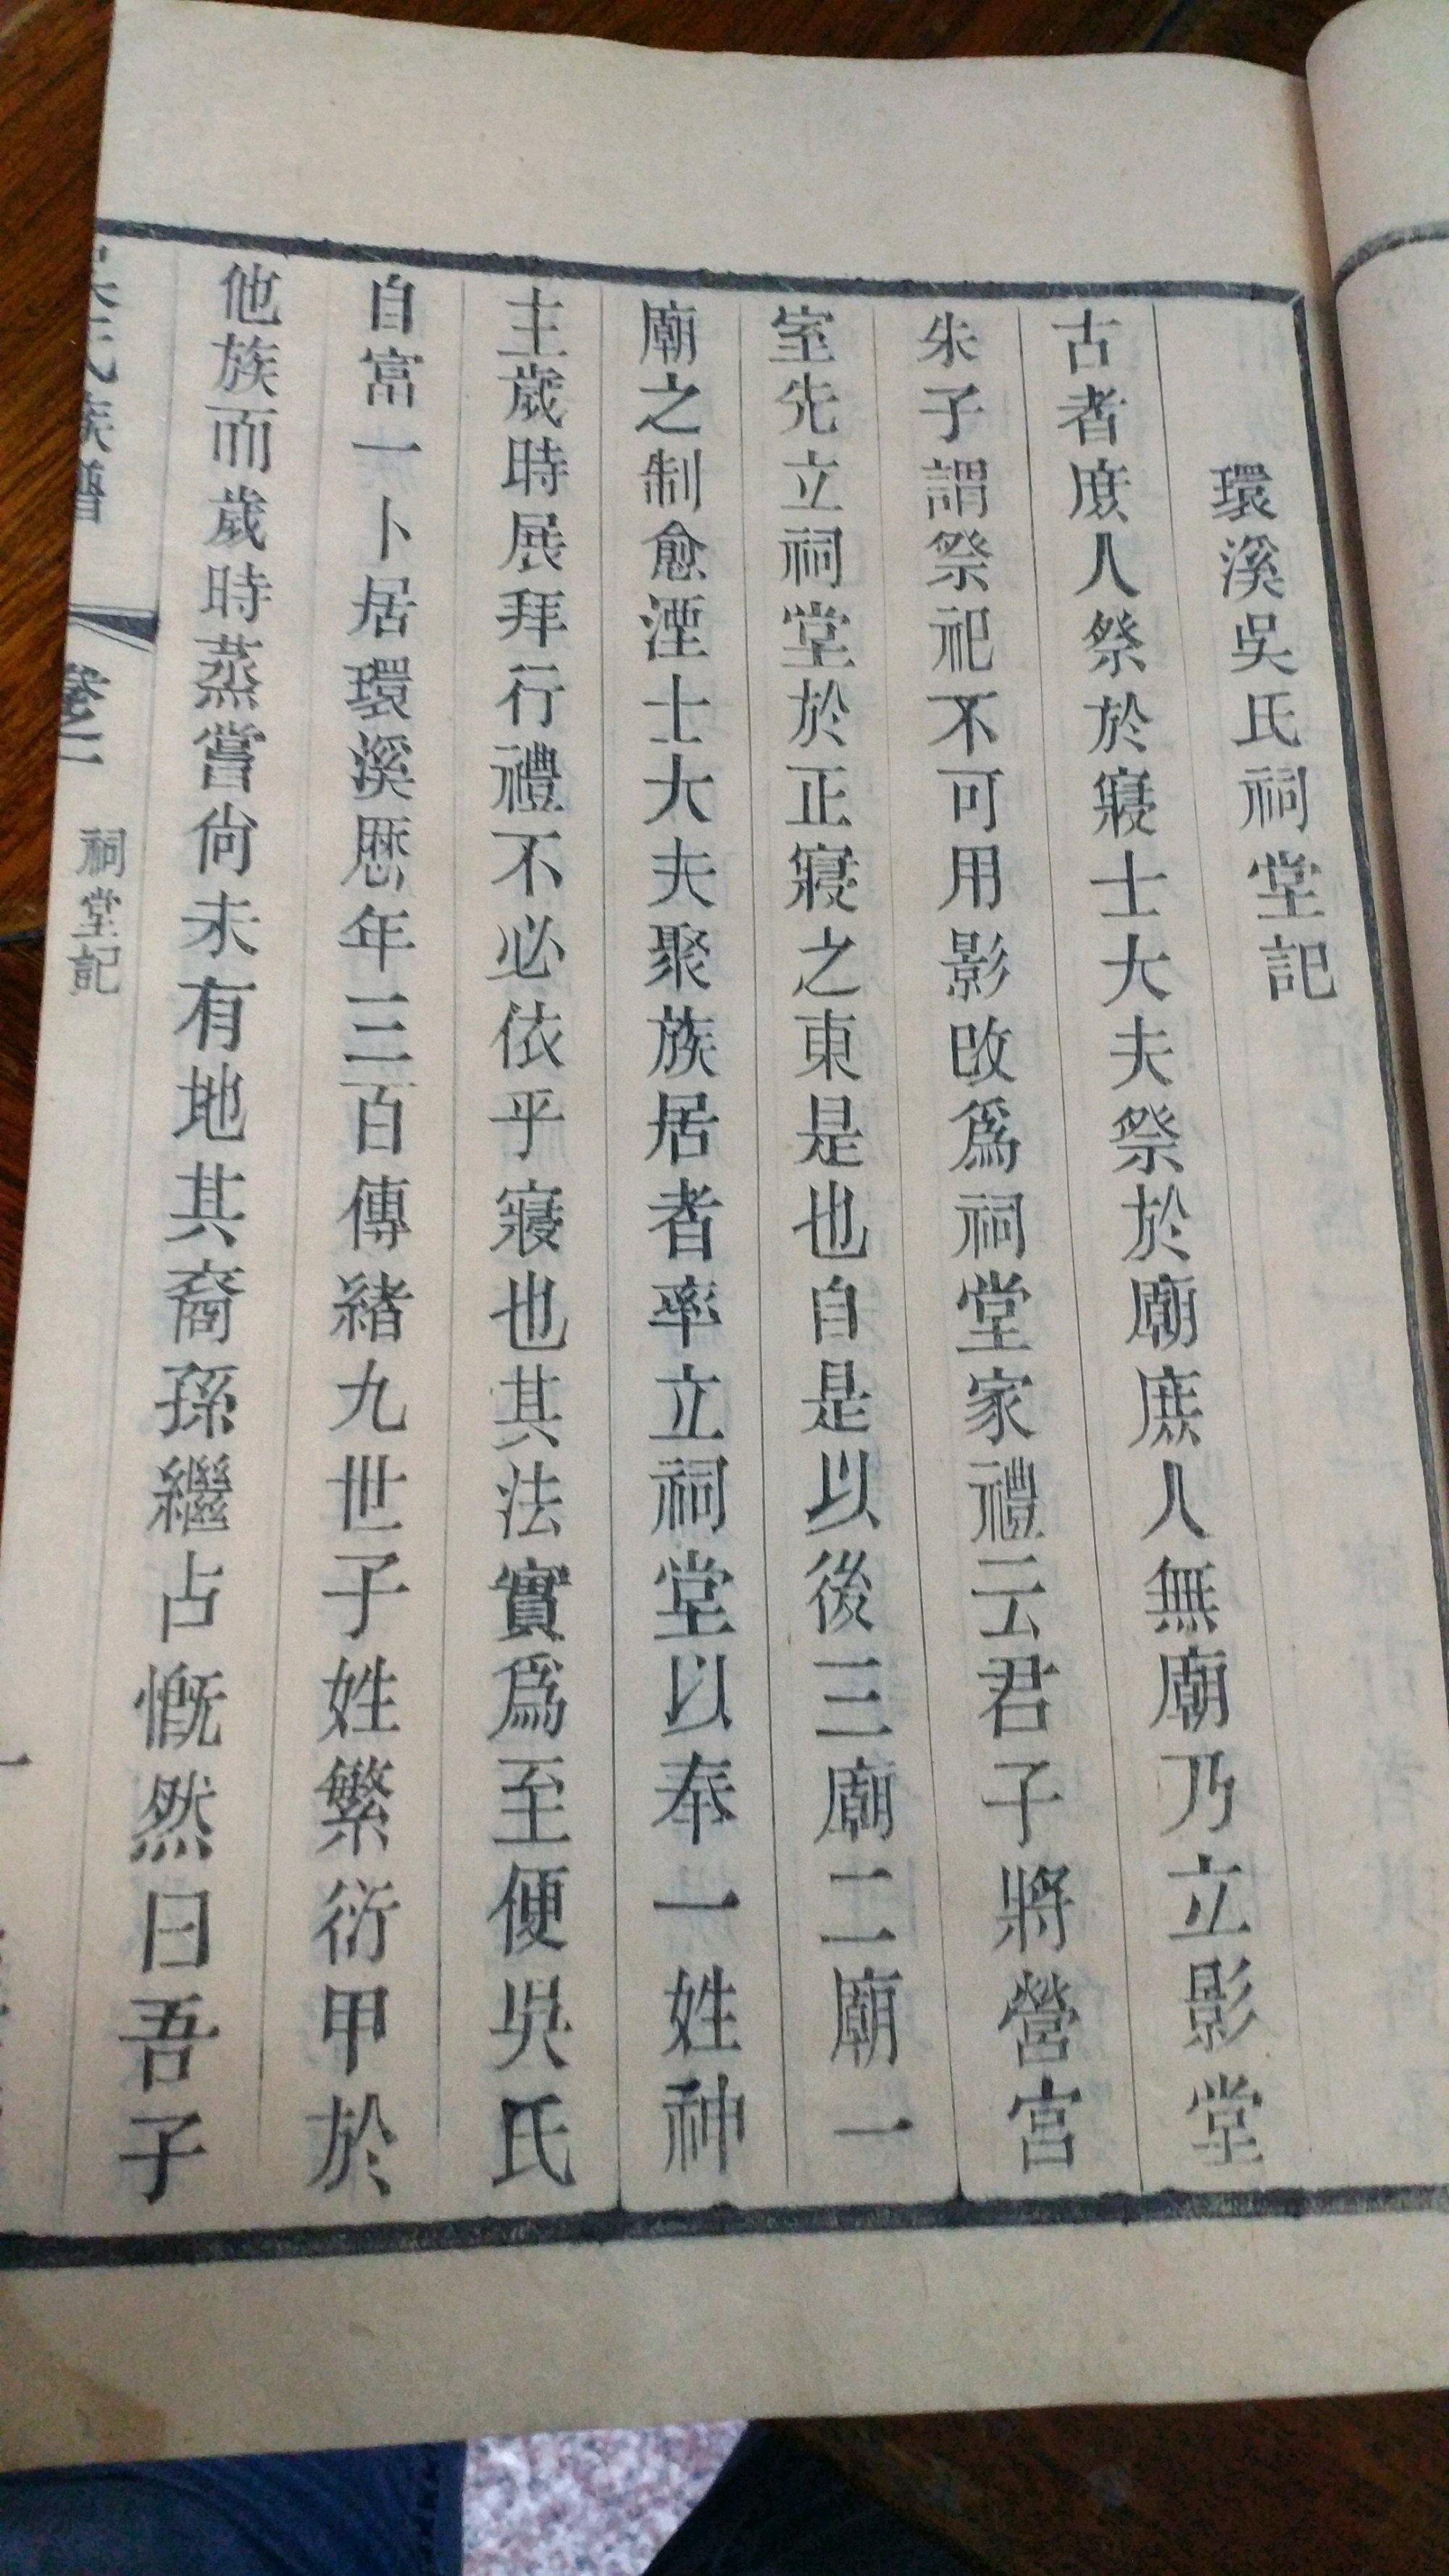 環溪吳氏祠堂記
古者庶人祭於寢士大夫祭於廟庶人無廟乃立影堂
朱子謂祭祀不可用影改爲祠堂家禮云君子將營宮
室先立祠堂於正寢之東是也自是以後三廟二廟一
廟之制愈湮士大夫聚族居者率立祠堂以奉一姓神
主歲時展拜行禮不必依乎寢也其法實爲至便吳氏
自富一卜居環溪厯年三百傳緒九世子姓繁衍甲於
他族而歲時蒸嘗尙未有地其裔孫繼占慨然曰吾子
氏族譜
卷之一
祠堂記
一